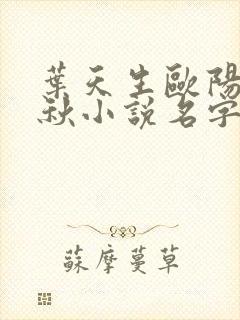 葉天生歐陽
秋小說名字
蘇摩蔓草